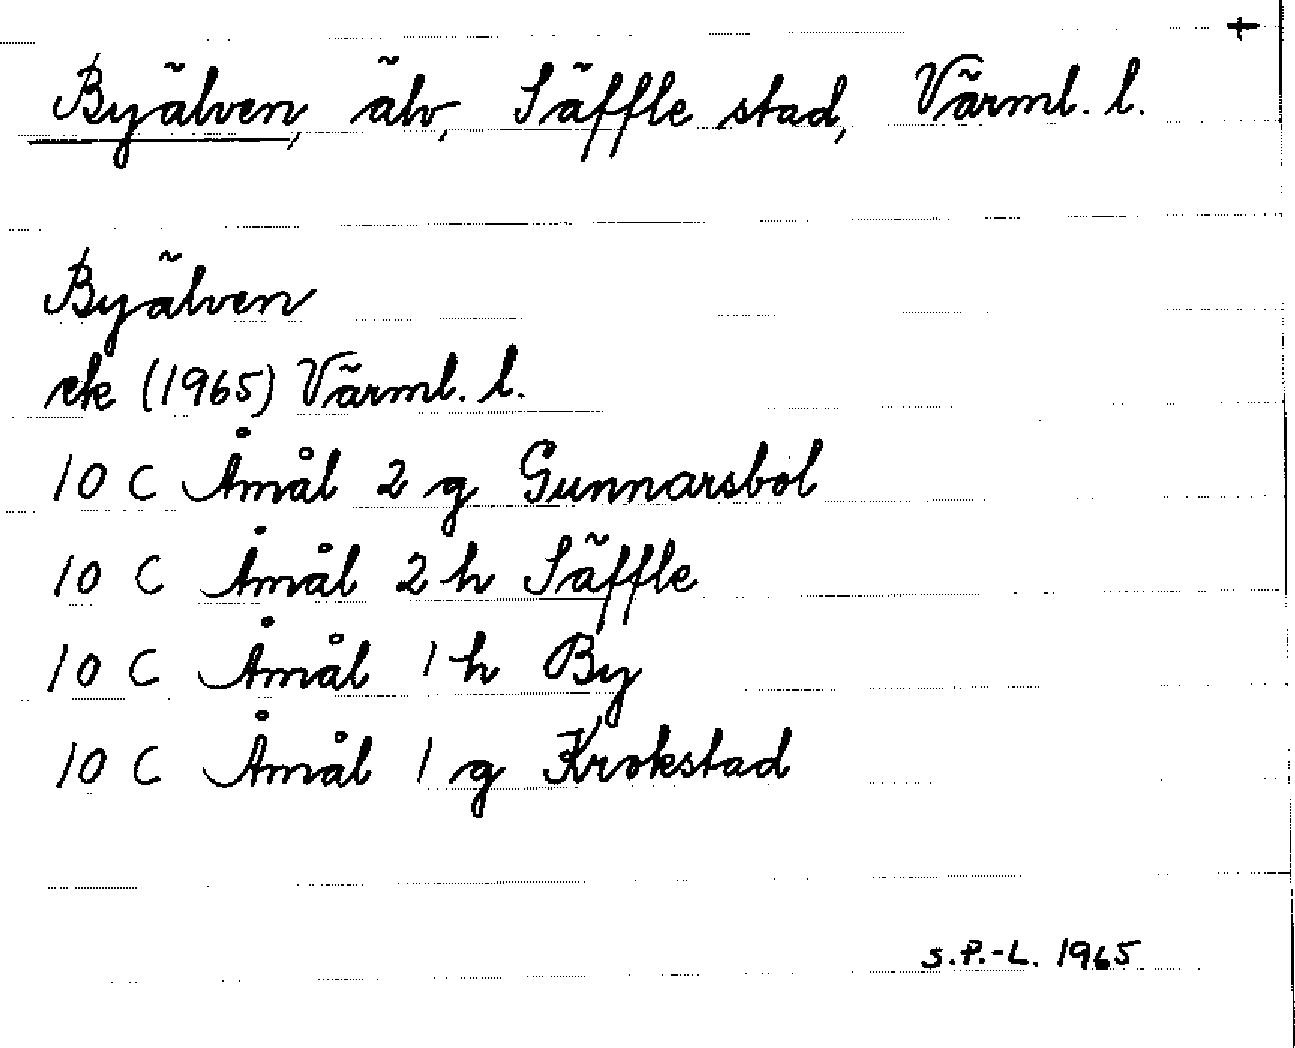 †
Byälven, älv, Säffle stad, Värml. l.
Byälven
ek (1965) Värml. l.
10 C Åmål 2 g Gunnarsbol
10 C Åmål 2 h Säffle
10 C Åmål 1 h By
10 C Åmål 1 g Krokstad
S.P.-L. 1965